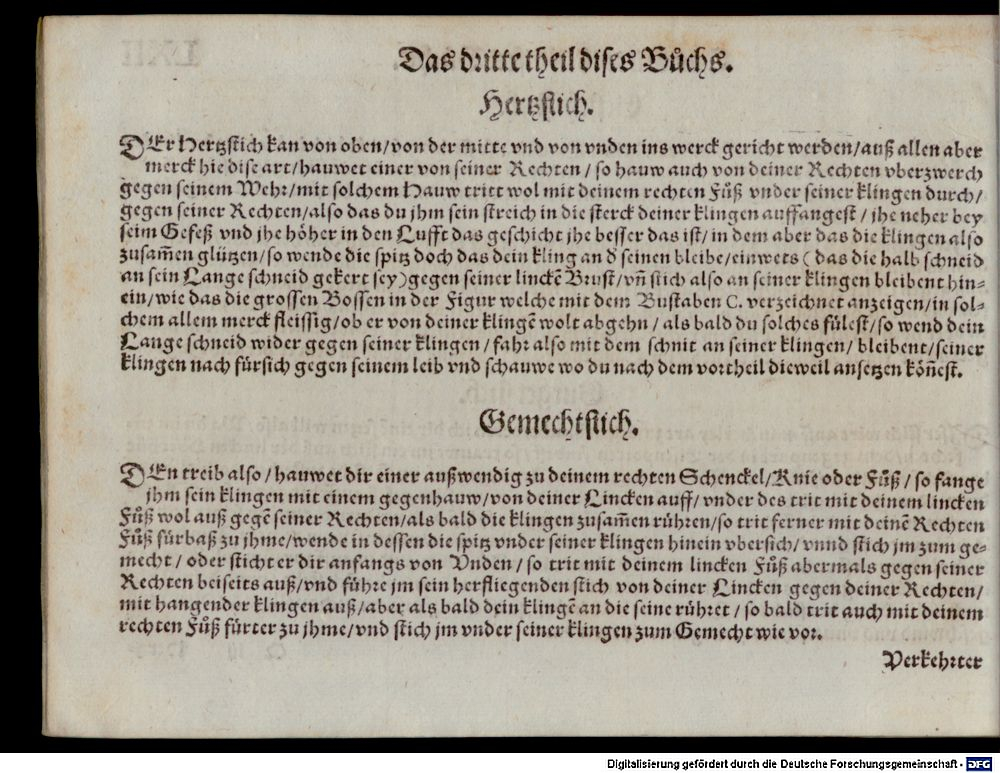 Das dritte theil dises Bůchs.
Hertzstich.
DEr Hertzstich kan von oben/von der mitte vnd von vnden ins werck gericht werden/auß allen aber
merck hie dise art/hauwet einer von seiner Rechten / so hauw auch von deiner Rechten vberzwerch
gegen seinem Wehr/mit solchem Hauw tritt wol mit deinem rechten Fůß vnder seiner klingen durch/
gegen seiner Rechten/also das du jhm sein streich in die sterck deiner klingen auffangest / jhe neher bey
seim Gefeß vnd jhe höher in den Lufft das geschicht jhe besser das ist/ in dem aber das die klingen also
zusam̃en glützen/so wende die spitz doch das dein kling an d̓ seinen bleibe/einwets ( das die halb schneid
an sein Lange schneid gekert sey)gegen seiner linckẽ Brust/vñ stich also an seiner klingen bleibent hin-
ein/wie das die grossen Bossen in der Figur welche mit dem Bustaben C. verzeichnet anzeigen/in sol-
chem allem merck fleissig/ob er von deiner klingẽ wolt abgehn / als bald du solches fülest/so wend dein
Lange schneid wider gegen seiner klingen / fahr also mit dem schnit an seiner klingen/ bleibent/seiner
klingen nach fürsich gegen seinem leib vnd schauwe wo du nach dem vortheil dieweil ansetzen köñest.
Gemechtstich.
DEn treib also / hauwet dir einer außwendig zu deinem rechten Schenckel/Knie oder Fůß / so fange
jhm sein klingen mit einem gegenhauw/von deiner Lincken auff/ vnder des trit mit deinem lincken
Fůß wol auß gegẽ seiner Rechten/als bald die klingen zusam̃en rühren/so trit ferner mit deinẽ Rechten
Fůß fürbaß zu jhme/wende in dessen die spitz vnder seiner klingen hinein vbersich/ vnnd stich jm zum ge-
mecht / oder sticht er dir anfangs von Vnden / so trit mit deinem lincken Fůß abermals gegen seiner
Rechten beiseits auß/vnd führe jm sein herfliegenden stich von deiner Lincken gegen deiner Rechten/
mit hangender klingen auß/aber als bald dein klingẽ an die seine rühret / so bald trit auch mit deinem
rechten Fůß fürter zu jhme/vnd stich jm vnder seiner klingen zum Gemecht wie vor.
Verkehrter
Digitalisierung gefördert durch die Deutsche Forschungsgemeinschaft - DFG